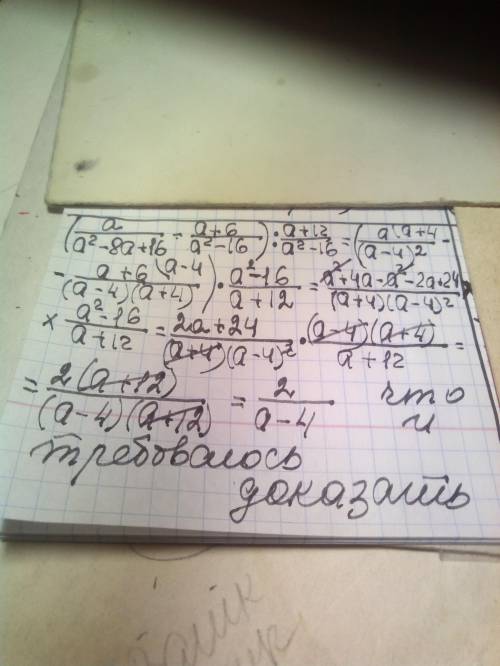 (a/(a²-8a+16) - (a+6)/(a²-16)) : (a+12)/(a²-16) = (a\a+4/(a-4)² -
- (a+6\a-4)/((a-4)(a+4))) · (a²-16)/(a+12) = (a²+4a-a²-2a+24)/((a+4)(a-4)²) ×
× (a²-16)/(a+12) = (2a+24)/((a+4)(a-4)²) · ((a-4)(a+4))/(a+12) =
= 2(a+12)/((a-4)(a+12)) = 2/(a-4) что и
требовалось
доказать